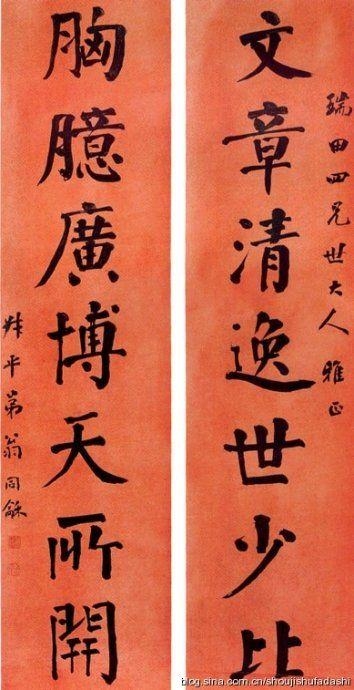 瑞田四兄世大人雅正
文章清逸世少比
胸臆廣博天所開
叔平弟翁同龢
blog.sina.com.cn/shoujishufadashi